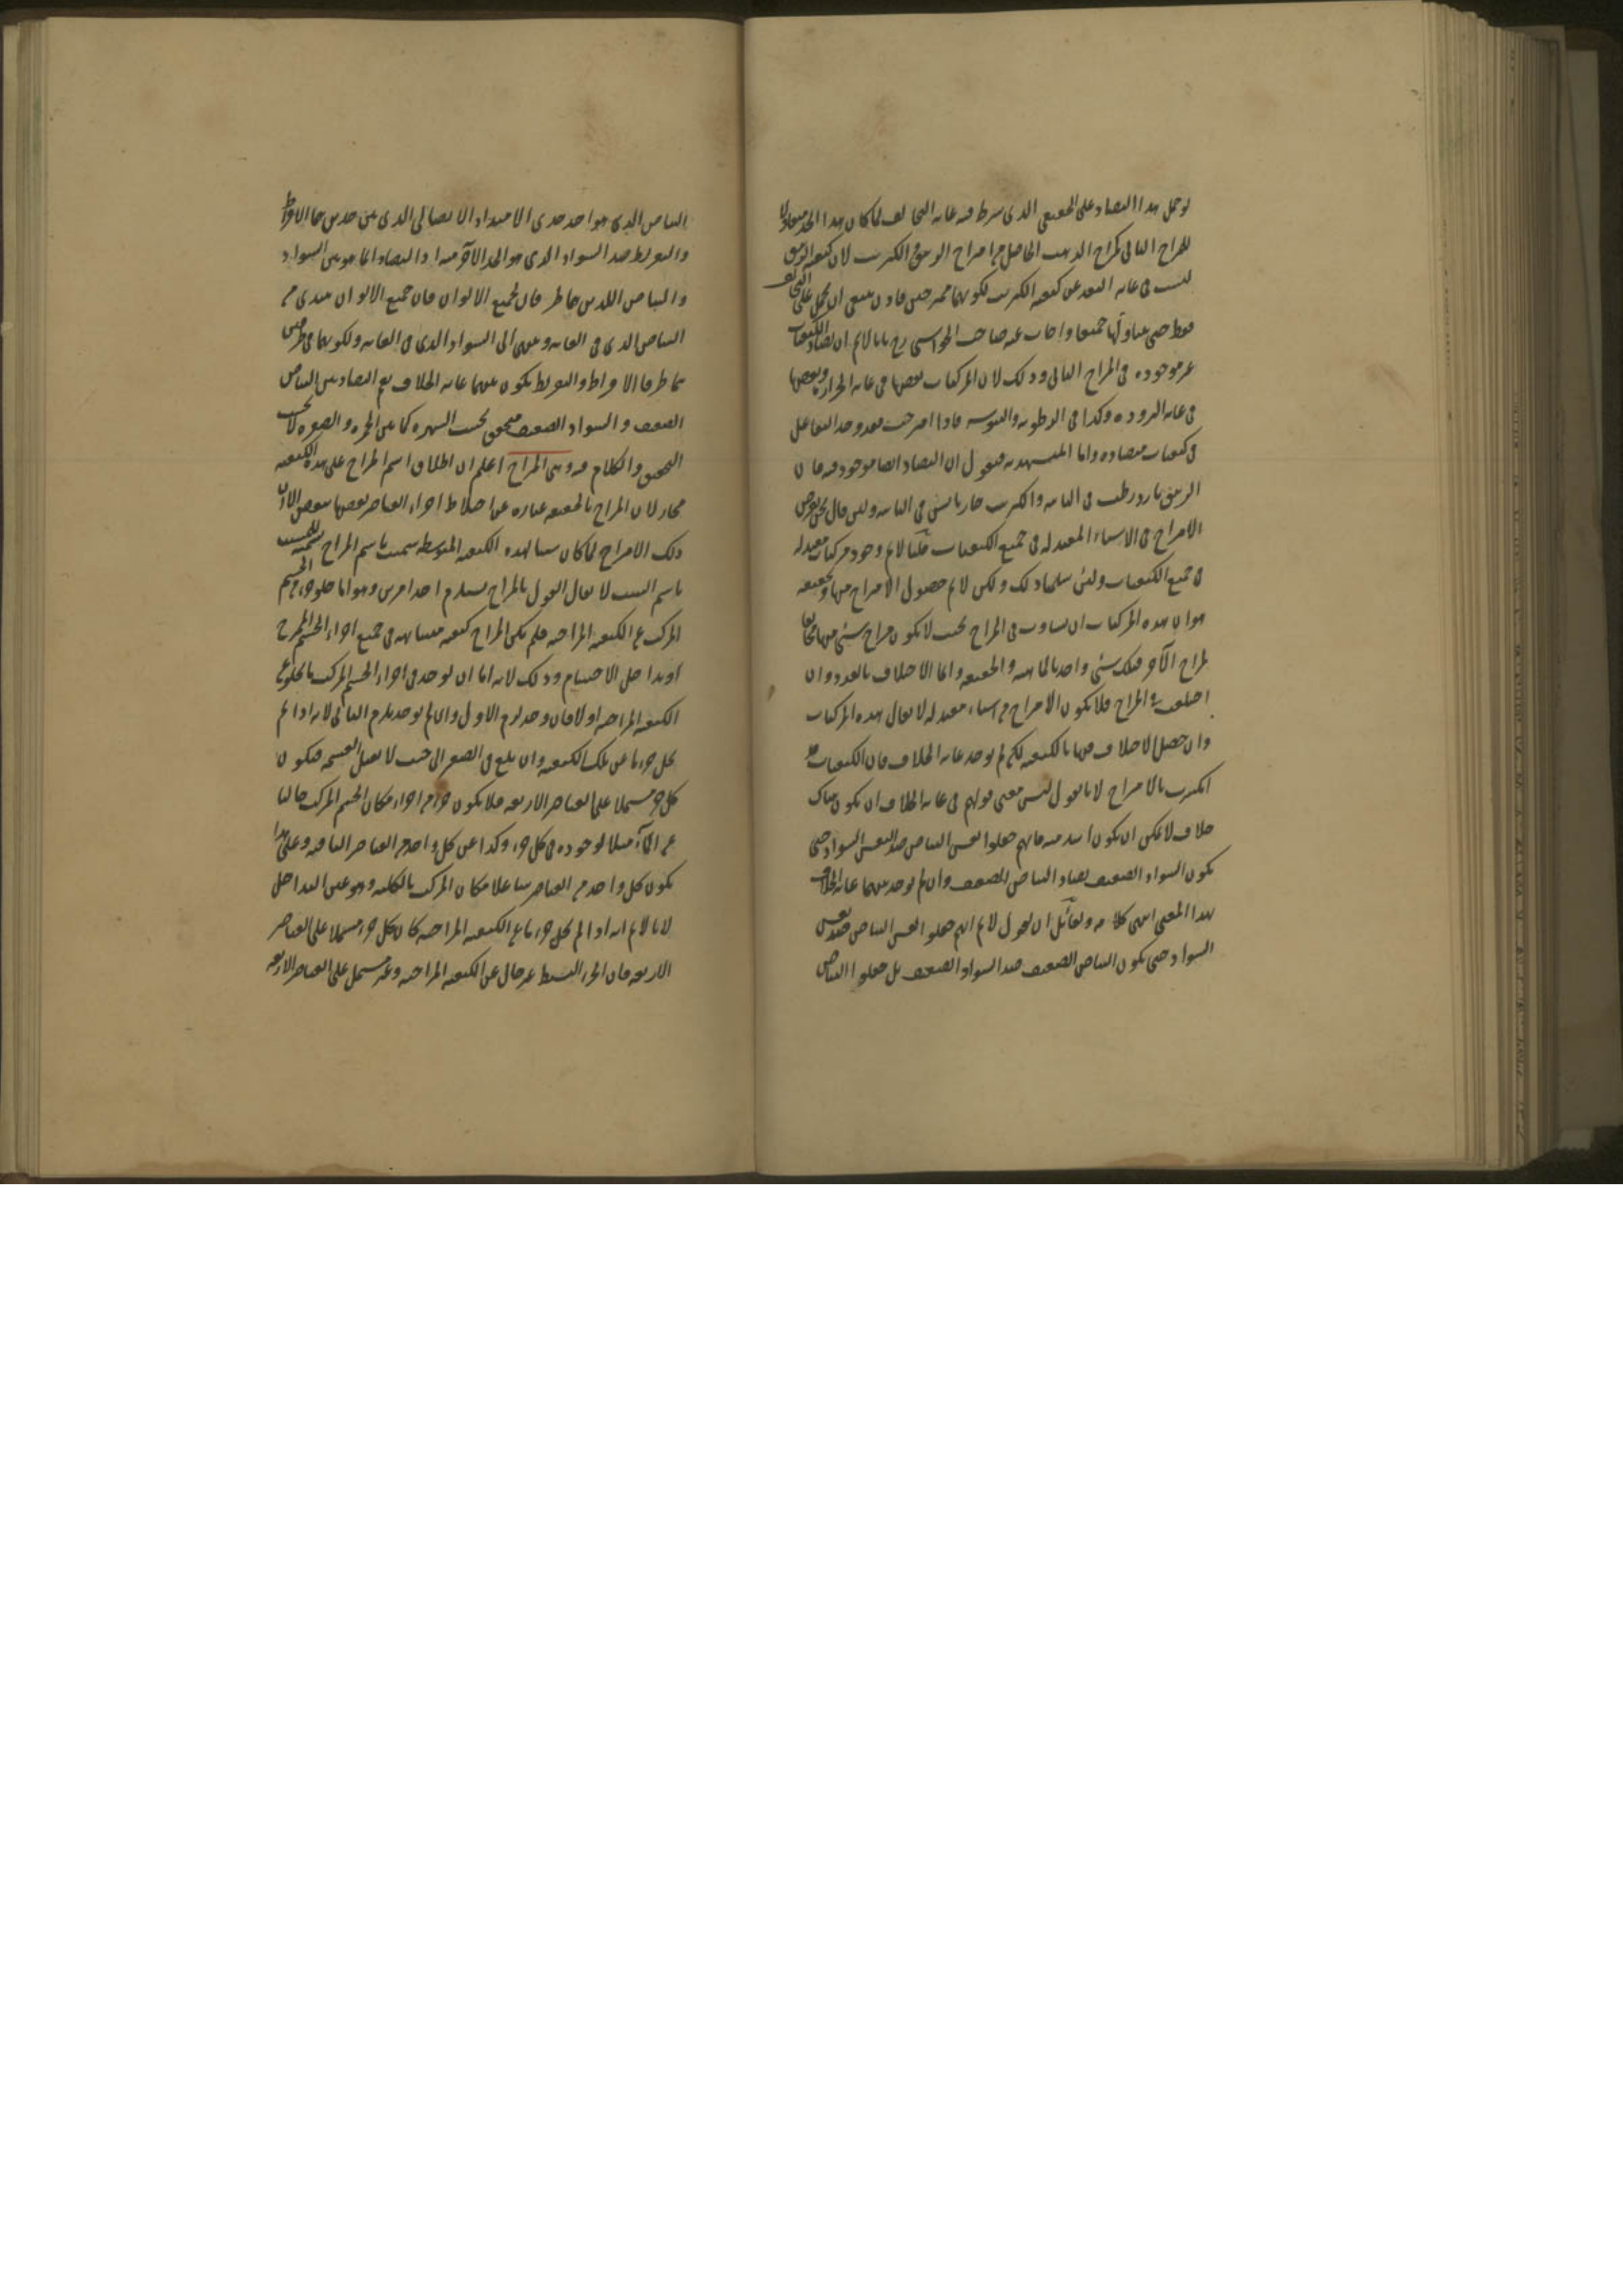 لو حمل هذا التضاد على الحقيقي الذى شرط فيه غاية التخالف لما كان هذا الحد متناولا
للمزاج الثانى كمزاج الذهب الحاصل من امتزاج الزيبق والكبريت لان كيفية الزيبق
ليست فى غاية البعد عن كيفية الكبريت لكونهما ممتزجين فاذن ينبغى ان يحمل على التخالف
فقط حتى يتناولهما جميعا واجاب عنه صاحب الحواشى رح بانا لانم ان تضاد الكيفيات
غير موجودة فى المزاج الثانى وذلك لان المركبات بعضها فى غاية الحرارة وبعضها
فى غاية البرودة وكذا فى الرطوبة واليبوسة فاذا امتزجت فقد وجد التفاعل
فى كيفيات متضادة واما المستشهد به فنقول ان التضاد ايضا موجود فيه فان
الزيبق بارد رطب فى الغاية والكبريت حار يابس فى الغاية ولئن قال نحن نفرض
الامتزاج فى الاشياء المعتدلة فى جميع الكيفيات قلنا لانم وجود مركبات معتدلة
فى جميع الكيفيات ولئن سلمنا ذلك ولكن لانم حصول الامتزاج منها وتحقيقه
هو ان هذه المركبات ان تساوت فى المزاج بحيث لا يكون مزاج شئ منها مخالفا
لمزاج الآخر فتلك شئ واحد بالماهية والحقيقة وانما الاختلاف بالعدد وان
اختلفت فى المزاج فلا يكون الامتزاج من اشياء معتدلة لا يقال هذه المركبات
وان حصل الاختلاف فيها بالكيفية لكن لم يوجد غاية الخلاف فان الكيفيات قد
انكسرت بالامتزاج لانا نقول ليس معنى قولهم فى غاية الخلاف ان يكون هناك
خلاف لا يمكن ان يكون اشد منه فانهم جعلوا نفس البياض ضد نفس السواد حتى
يكون السواد الضعيف يضاد البياض الضعيف وان لم يوجد بينهما غاية الخلاف
بهذا المعنى انتهى كلامه ولقائل ان يقول لانم انهم جعلوا نفس البياض ضد نفس
السواد حتى يكون البياض الضعيف ضد السواد الضعيف بل جعلوا البياض
البياض الذى هو احد حدى الامتداد الاتصالى الذى بين حدين هما الافراط
والتفريط ضد السواد الذى هو الحد الآخر منه اذ التضاد انما هو بين السواد
والبياض اللذين هما طرفان لجميع الالوان فان جميع الالوان يبتدى من
البياض الذى فى الغاية وينتهى الى السواد الذى فى الغاية ولكونهما فى طرفين
هما طرفا الافراط والتفريط يكون بينهما غاية الخلاف نعم التضاد بين البياض
الضعيف والسواد الضعيف متحقق بحسب الشهرة كما بين الحمرة والصفرة لا بحسب
التحقيق والكلام فيه وهى المزاج اعلم ان اطلاق اسم المزاج على هذه الكيفية
مجاز لان المزاج بالحقيقة عبارة عن اختلاط اجزاء العناصر بعضها ببعض الا ان
ذلك الامتزاج لما كان سببا لهذه الكيفية المتوسطة سميت باسم المزاج تسمية للمسبب
باسم السبب لا يقال القول بالمزاج يستلزم احد امرين وهو اما خلو جزء من الجسم
المركب عن الكيفية المزاجية فلم يكن المزاج كيفية متشابهة فى جميع اجزاء الجسم الممتزج
او تداخل الاجسام وذلك لانه اما ان يوجد فى اجزاء الجسم المركب ما يخلو عن
الكيفية المزاجية اولا فان وجد لزم الاول وان لم يوجد يلزم الثانى لانه اذا لم
يخل جزء ما عن تلك الكيفية وان بلغ فى الصغر الى حيث لا يقبل القسمة فيكون
كل جزء مشتملا على العناصر الاربعة فلا يكون جزء من اجزاء مكان الجسم المركب خاليا
عن الماء مثلا لوجوده فى كل جزء وكذا عن كل واحد من العناصر الباقية وعلى هذا
يكون كل واحد من العناصر شاغلا مكان المركب بالكلية وهو عين التداخل
لانا لانم انه اذا لم يخل جزء ما عن الكيفية المزاجية كان كل جزء مشتملا على العناصر
الاربعة فان الجزء البسيط غير خال عن الكيفية المزاجية وغير مشتمل على العناصر الاربعة